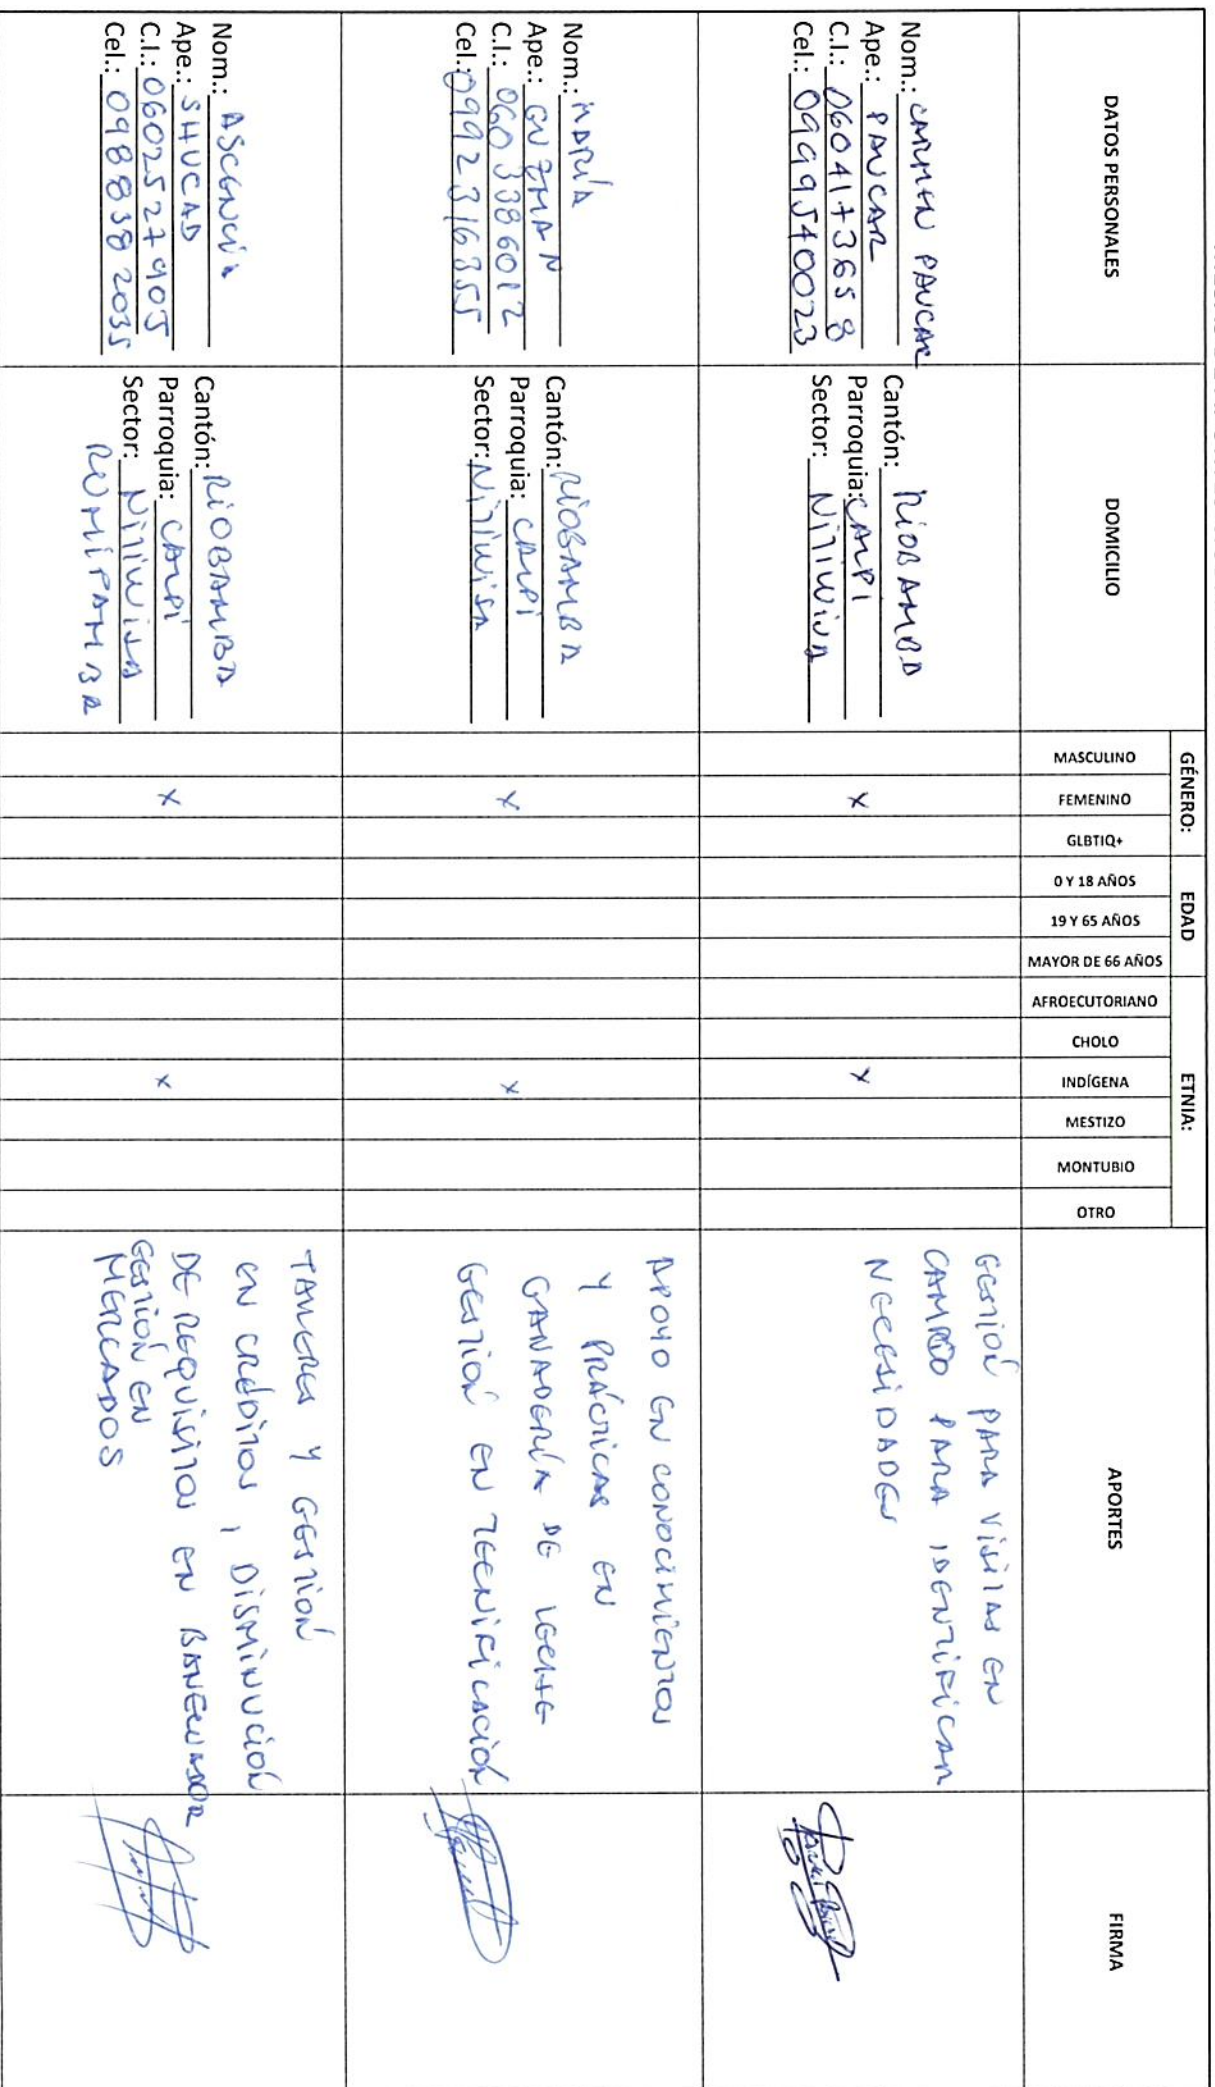 DATOS PERSONALES
DOMICILIO
GÉNERO:
EDAD
ETNIA:
APORTES
FIRMA
MASCULINO
FEMENINO
GLBTIQ+
0 Y 18 AÑOS
19 Y 65 AÑOS
MAYOR DE 66 AÑOS
AFROECUTORIANO
CHOLO
INDÍGENA
MESTIZO
MONTUBIO
OTRO
Nom.: CARMEN PAUCAR
Ape.: PAUCAR
C.I.: 0604173658
Cel.: 0999540023
Cantón: RIOBAMBA
Parroquia: CALPI
Sector: NITILUISA
X
X
GESTIÓN PARA VISITAS EN
CAMPO PARA IDENTIFICAR
NECESIDADES
Nom.: MARÍA
Ape.: GUZMAN
C.I.: 0603386012
Cel.: 0992316355
Cantón: RIOBAMBA
Parroquia: CALPI
Sector: NITILUISA
X
X
APOYO EN CONOCIMIENTOS
Y PRÁCTICAS EN
GANADERÍA DE LECHE
GESTIÓN EN TECNIFICACIÓN
Nom.: ASCENCIA
Ape.: SHUCAD
C.I.: 0602527905
Cel.: 0988382035
Cantón: RIOBAMBA
Parroquia: CALPI
Sector: NITILUISA
RUMIPAMBA
X
X
TALLERES Y GESTIÓN
EN CRÉDITOS, DISMINUCIÓN
DE REQUISITOS EN BANECUADOR
GESTIÓN EN
MERCADOS